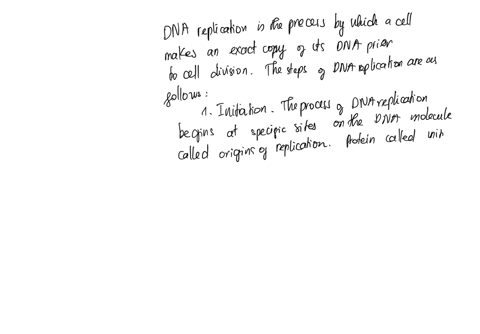 DNA replication is the process by which a cell
makes an exact copy of its DNA prior
to cell division. The steps of DNA replication are as
follows:
1. Initation. The process of DNA replication
begins at specific sites on the DNA molecule
called origins of replication. Protein called init